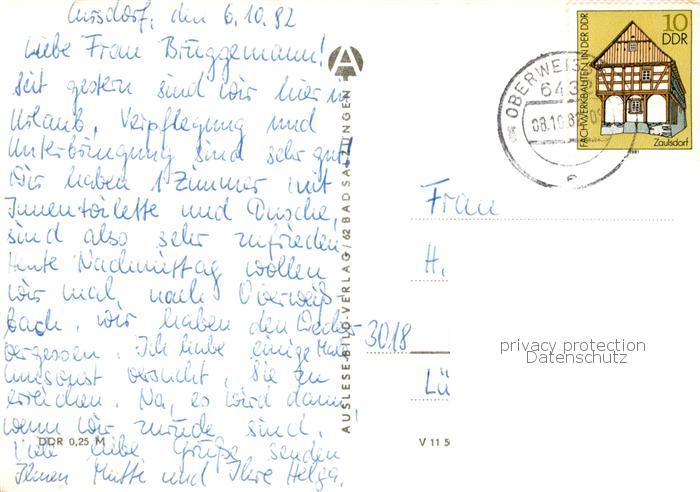 Cursdorf, den 6.10.82
Liebe Frau Brüggemann!
Seit gestern sind wir hier in
Urlaub, Verpflegung und
Unterbringung sind sehr gut!
Wir haben 1 Zimmer mit
Innentoilette und Dusche,
sind also sehr zufrieden.
Heute Nachmittag wollen
wir mal nach Oberweiß-
bach, wir haben den Wecker
vergessen. Ich habe einige Mal
umsonst versucht, Sie zu
erreichen. Na, es wird dann,
wenn wir zurück sind.
Viele liebe Grüße senden
Ihnen Mutti und Ihre Helga.
DDR 0,25 M
AUSLESE-BILD-VERLAG/62 BAD SALZUNGEN
A
V 11 5
OBERWEISS
643
08.10.82
10
DDR
FACHWERKBAUTEN IN DER DDR
Zaulsdorf
1981
Frau
H.
3018
Lü
privacy protection
Datenschutz